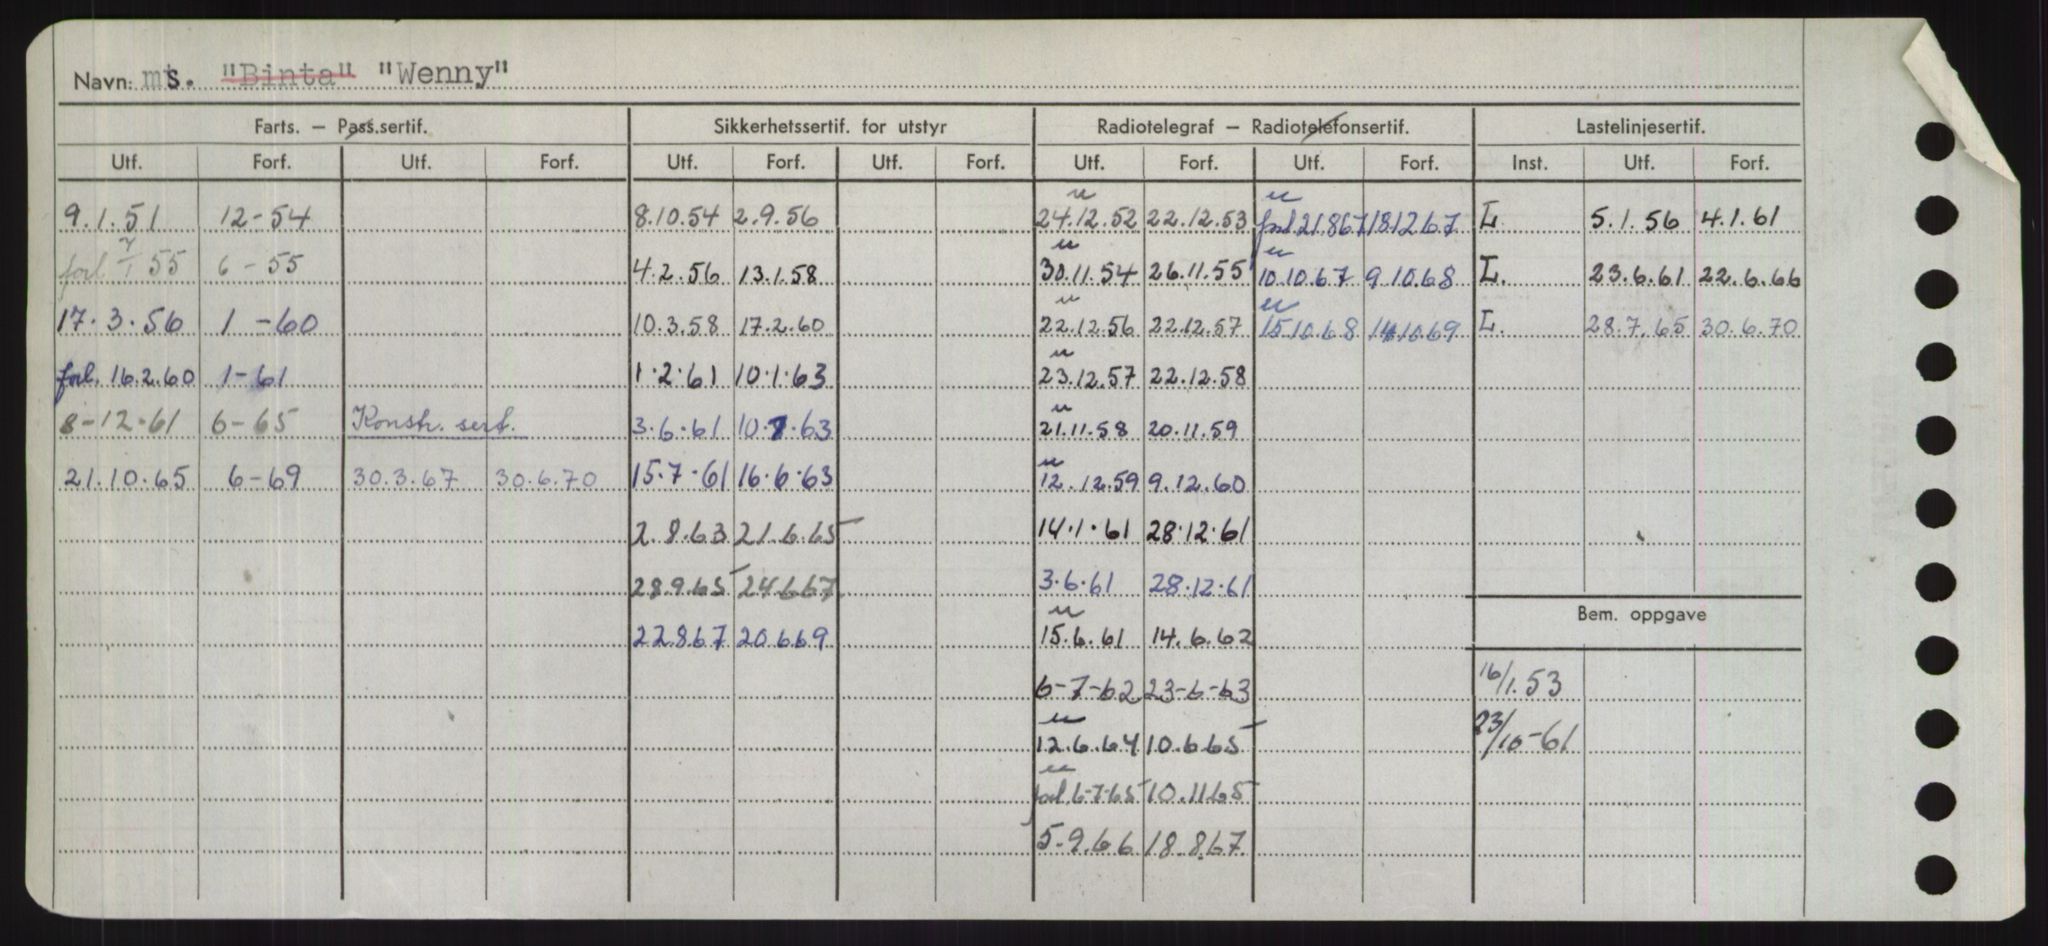 Navn: ms. "Binta" "Wenny"
Farts. – Pass.sertif. Sikkerhetssertif. for utstyr Radiotelegraf – Radiotelefonsertif. Lastelinjesertif.
Utf. Forf. Utf. Forf. Utf. Forf. Utf. Forf. Utf. Forf. Utf. Forf. Inst. Utf. Forf.
u u
9.1.51 12-54 8.10.54 2.9.56 24.12.52 22.12.53 forl 21.8.67 18.12.67 L. 5.1.56 4.1.61
u u
forl 7/1 55 6-55 4.2.56 13.1.58 30.11.54 26.11.55 10.10.67 9.10.68 L. 23.6.61 22.6.66
u u
17.3.56 1-60 10.3.58 17.2.60 22.12.56 22.12.57 15.10.68 14.10.69 L. 28.7.65 30.6.70
u
forl. 16.2.60 1-61 1.2.61 10.1.63 23.12.57 22.12.58
u
8-12-61 6-65 Konstr. sert. 3.6.61 10.1.63 21.11.58 20.11.59
u
21.10.65 6-69 30.3.67 30.6.70 15.7.61 16.6.63 12.12.59 9.12.60
2.8.63 21.6.65 14.1.61 28.12.61
28.9.65 24.6.67 3.6.61 28.12.61
Bem. oppgave
u
22.8.67 20.6.69 15.6.61 14.6.62
6-7-62 23-6-63 16/1.53
u
12.6.64 10.6.65 23/10-61
u
forl 6-7-65 10.11.65
5.9.66 18.8.67